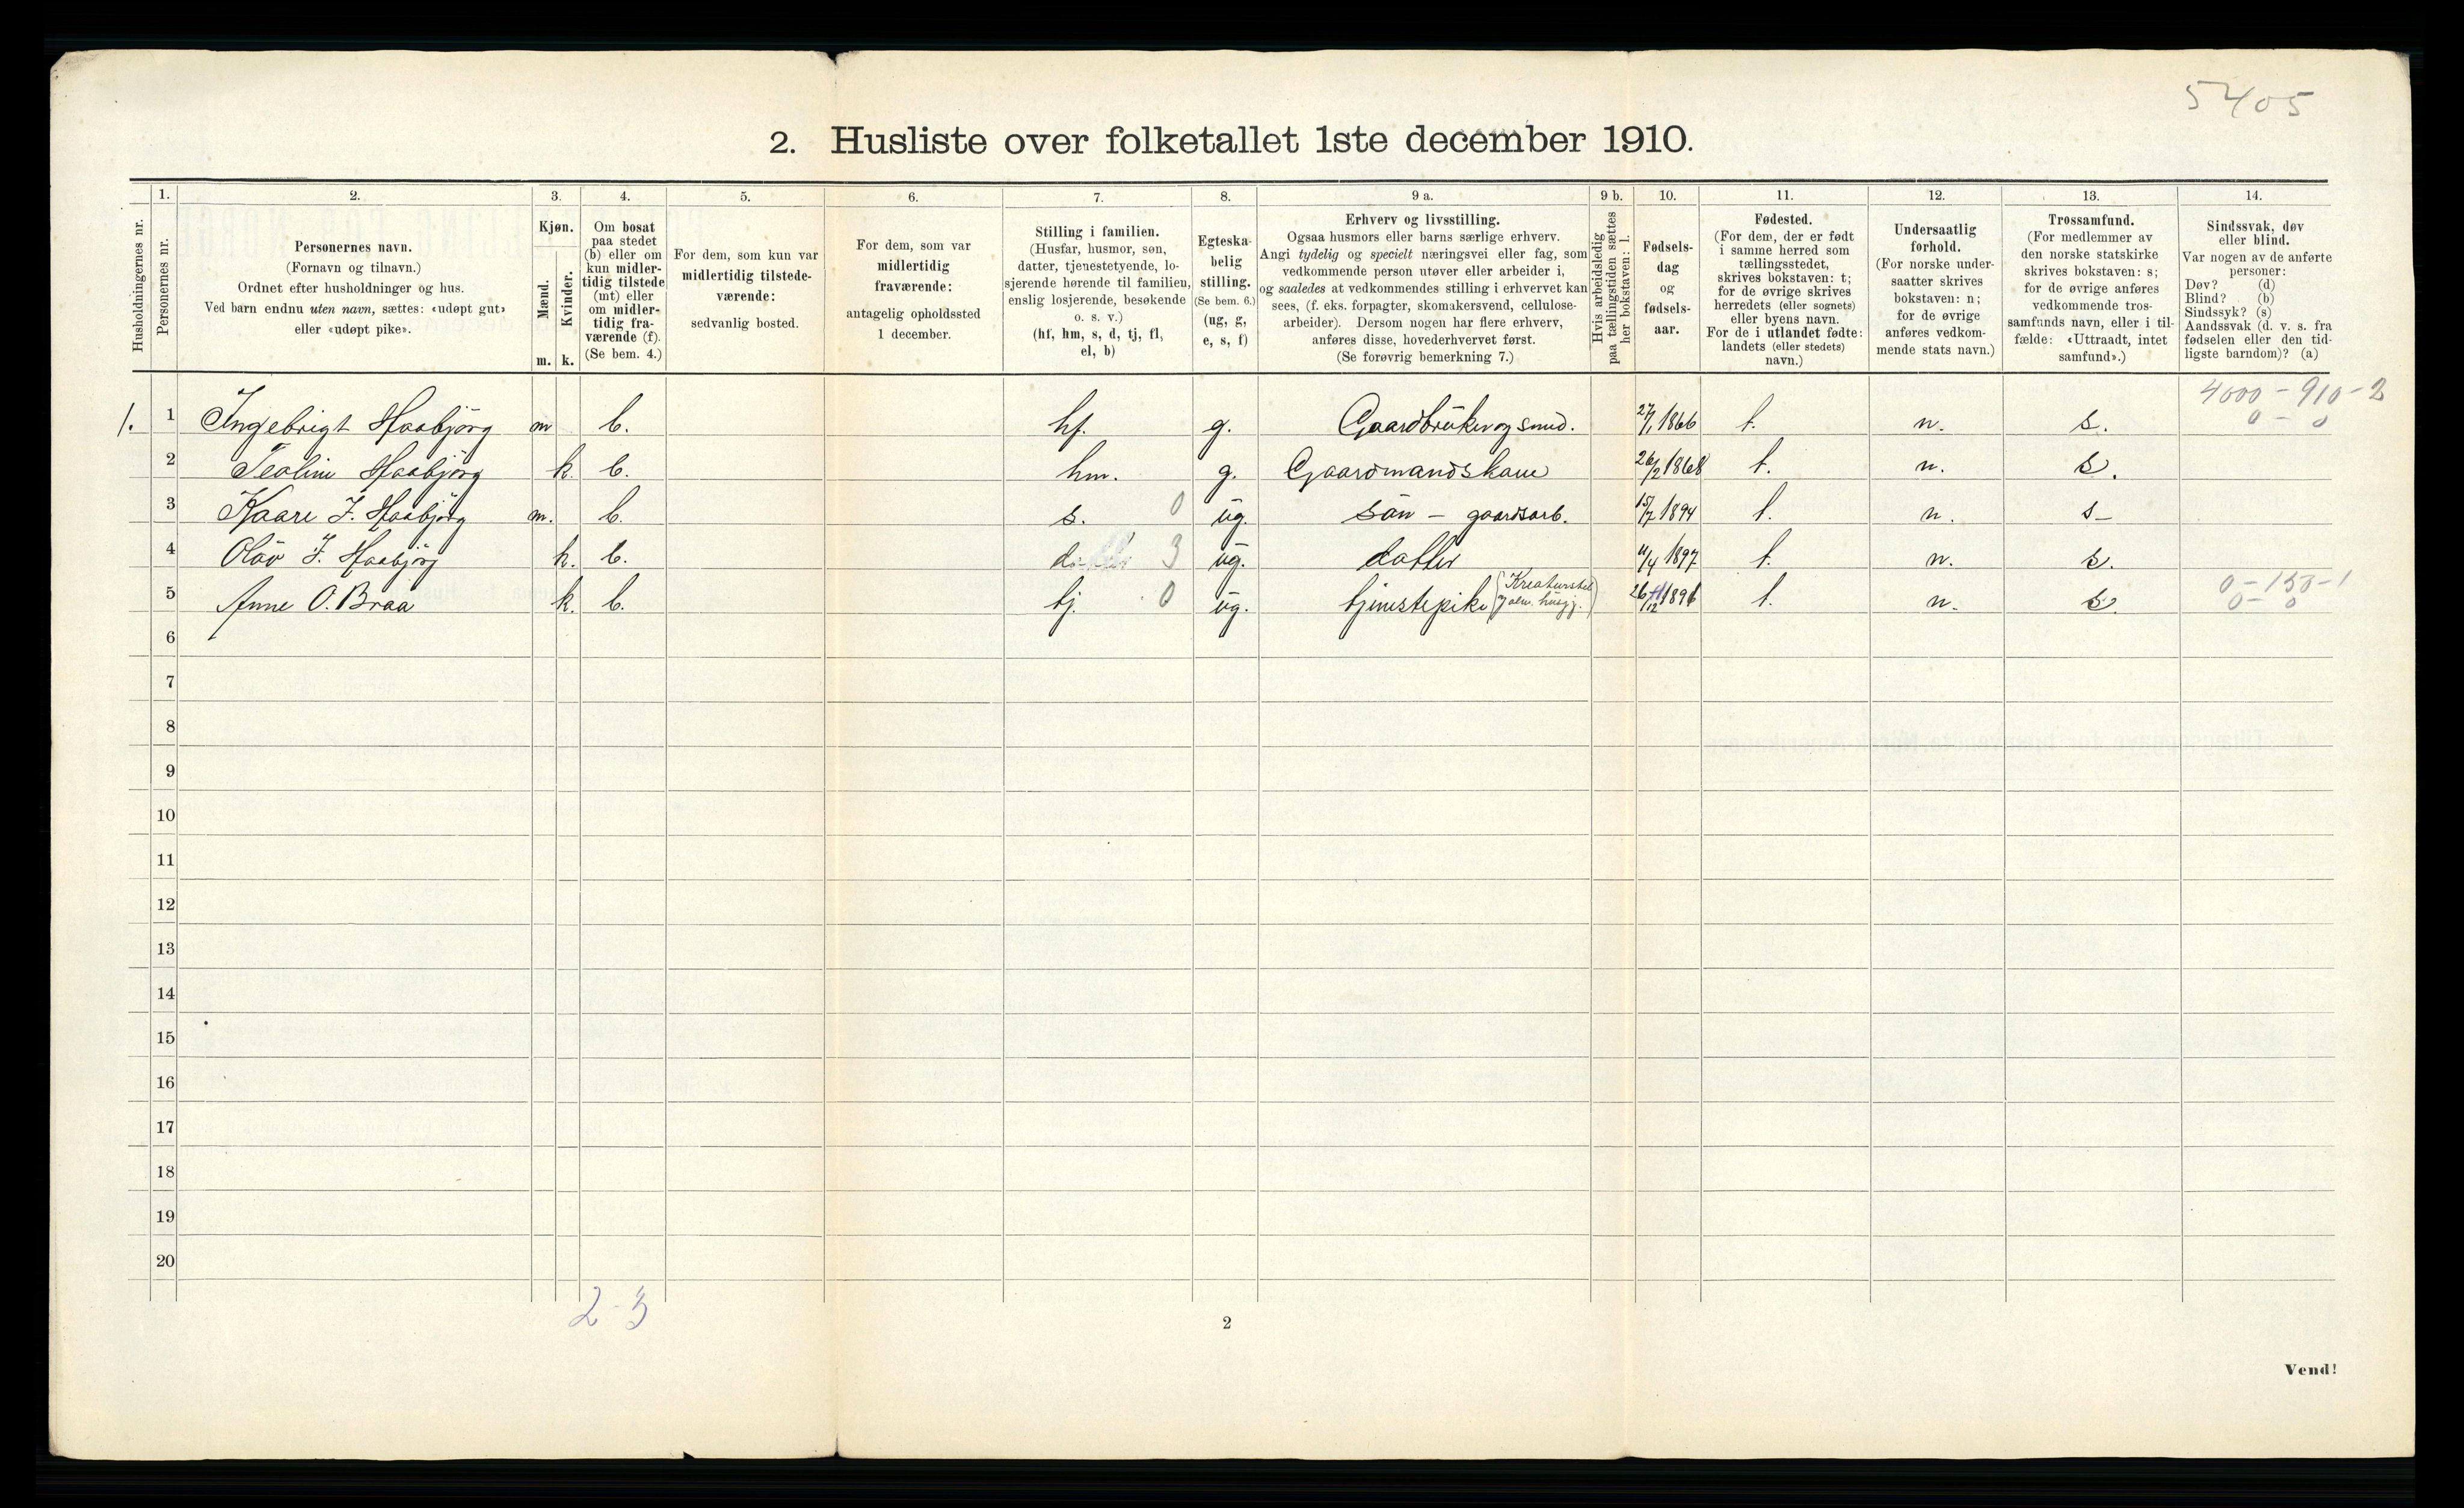 5405
2. Husliste over folketallet 1ste december 1910.
1. 2. 3. 4. 5. 6. 7. 8. 9 a. 9 b. 10. 11. 12. 13. 14.
Husholdningernes nr.
Personernes nr.
Personernes navn.
(Fornavn og tilnavn.)
Ordnet efter husholdninger og hus.
Ved barn endnu uten navn, sættes: «udøpt gut»
eller «udøpt pike».
Kjøn.
Mænd.
Kvinder.
m. k.
Om bosat
paa stedet
(b) eller om
kun midler-
tidig tilstede
(mt) eller
om midler-
tidig fra-
værende (f).
(Se bem. 4.)
For dem, som kun var
midlertidig tilstede-
værende:
sedvanlig bosted.
For dem, som var
midlertidig
fraværende:
antagelig opholdssted
1 december.
Stilling i familien.
(Husfar, husmor, søn,
datter, tjenestetyende, lo-
sjerende hørende til familien,
enslig losjerende, besøkende
o. s. v.)
(hf, hm, s, d, tj, fl,
el, b)
Egteska-
belig
stilling.
(Se bem. 6.)
(ug, g,
e, s, f)
Erhverv og livsstilling.
Ogsaa husmors eller barns særlige erhverv.
Angi tydelig og specielt næringsvei eller fag, som
vedkommende person utøver eller arbeider i,
og saaledes at vedkommendes stilling i erhvervet kan
sees, (f. eks. forpagter, skomakersvend, cellulose-
arbeider). Dersom nogen har flere erhverv,
anføres disse, hovederhvervet først.
(Se forøvrig bemerkning 7.)
Hvis arbeidsledig
paa tællingstiden sættes
her bokstaven: l.
Fødsels-
dag
og
fødsels-
aar.
Fødested.
(For dem, der er født
i samme herred som
tællingsstedet,
skrives bokstaven: t;
for de øvrige skrives
herredets (eller sognets)
eller byens navn.
For de i utlandet fødte:
landets (eller stedets)
navn.)
Undersaatlig
forhold.
(For norske under-
saatter skrives
bokstaven: n;
for de øvrige
anføres vedkom-
mende stats navn.)
Trossamfund.
(For medlemmer av
den norske statskirke
skrives bokstaven: s;
for de øvrige anføres
vedkommende tros-
samfunds navn, eller i til-
fælde: «Uttraadt, intet
samfund».)
Sindssvak, døv
eller blind.
Var nogen av de anførte
personer:
Døv? (d)
Blind? (b)
Sindssyk? (s)
Aandssvak (d. v. s. fra
fødselen eller den tid-
ligste barndom)? (a)
4000 - 910 - 2
0 - 0
1. 1 Ingebrigt Haabjörg m b. hf. g. Gaardbrüker og smed. 27/1 1866 t. n. s.
2 Teoline Haabjörg k. b. hm. g. Gaardmandskone 26/2 1868 t. n. s.
3 Kaare I. Haabjörg m. b. s. 0 ug. sön - gaardsarb. 15/7 1894 t. n. s-
4 Olöv I. Haabjörg k. b. d. 3 ug. datter 11/4 1897 t. n. s.
0 - 150 - 1
0 - 0
5 Anne O. Braa k. b. tj. 0 ug. tjenestepike (Kreaturstel og alm. husgj.) 26/12 1896 t. n. s.
6
7
8
9
10
11
12
13
14
15
16
17
18
19
20
2-3
2
Vend!